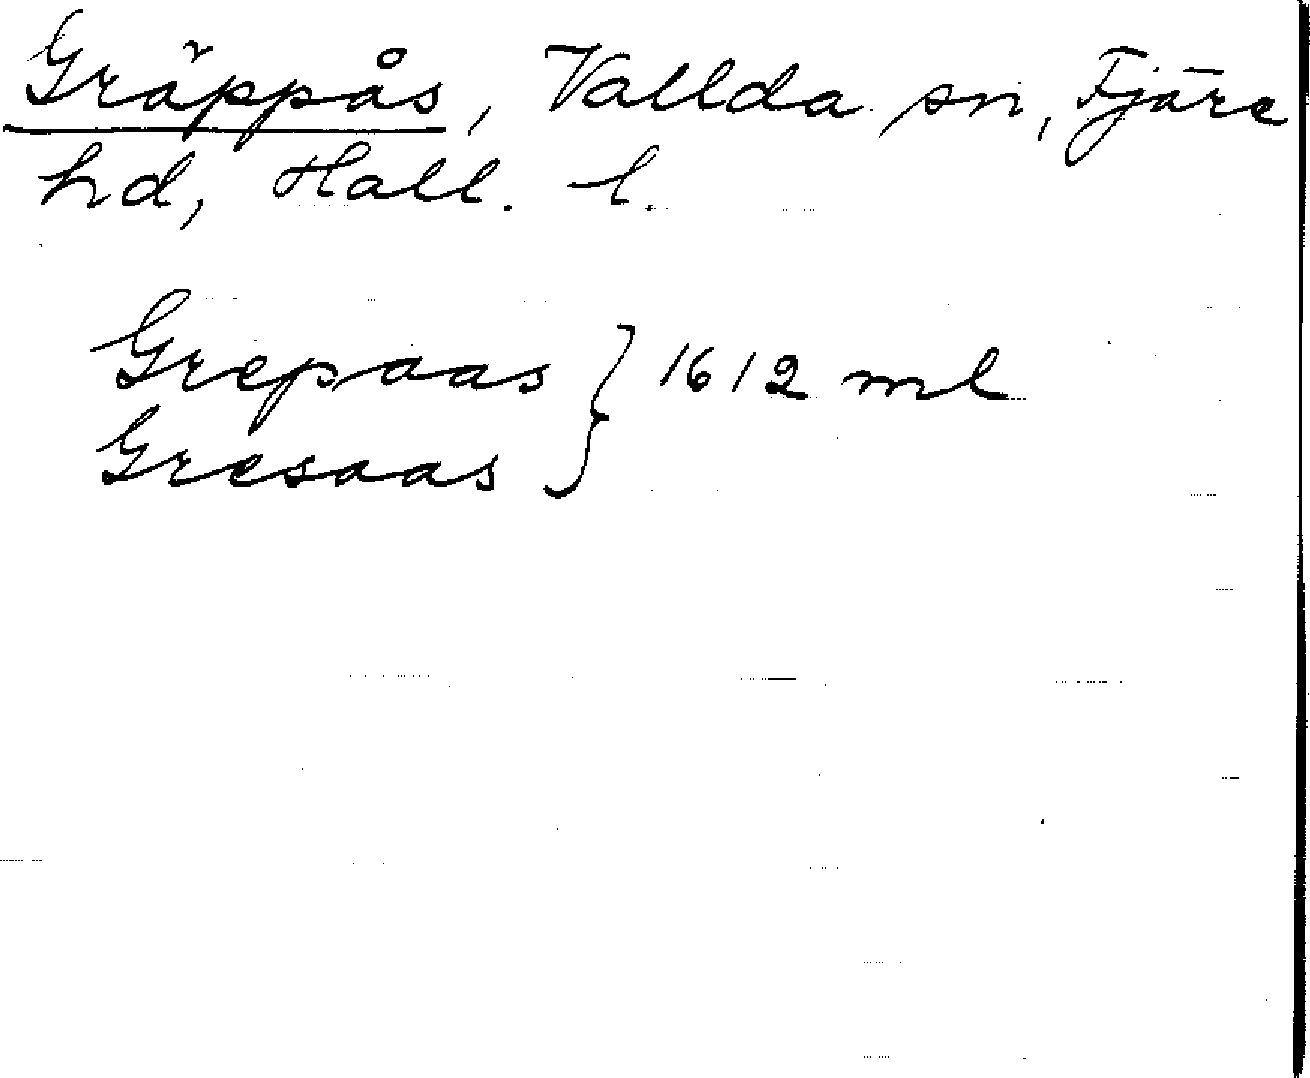 Gräppås, Vallda sn, Fjäre
hd, Hall. l.
Grepaas } 1612 ml
Gresaas